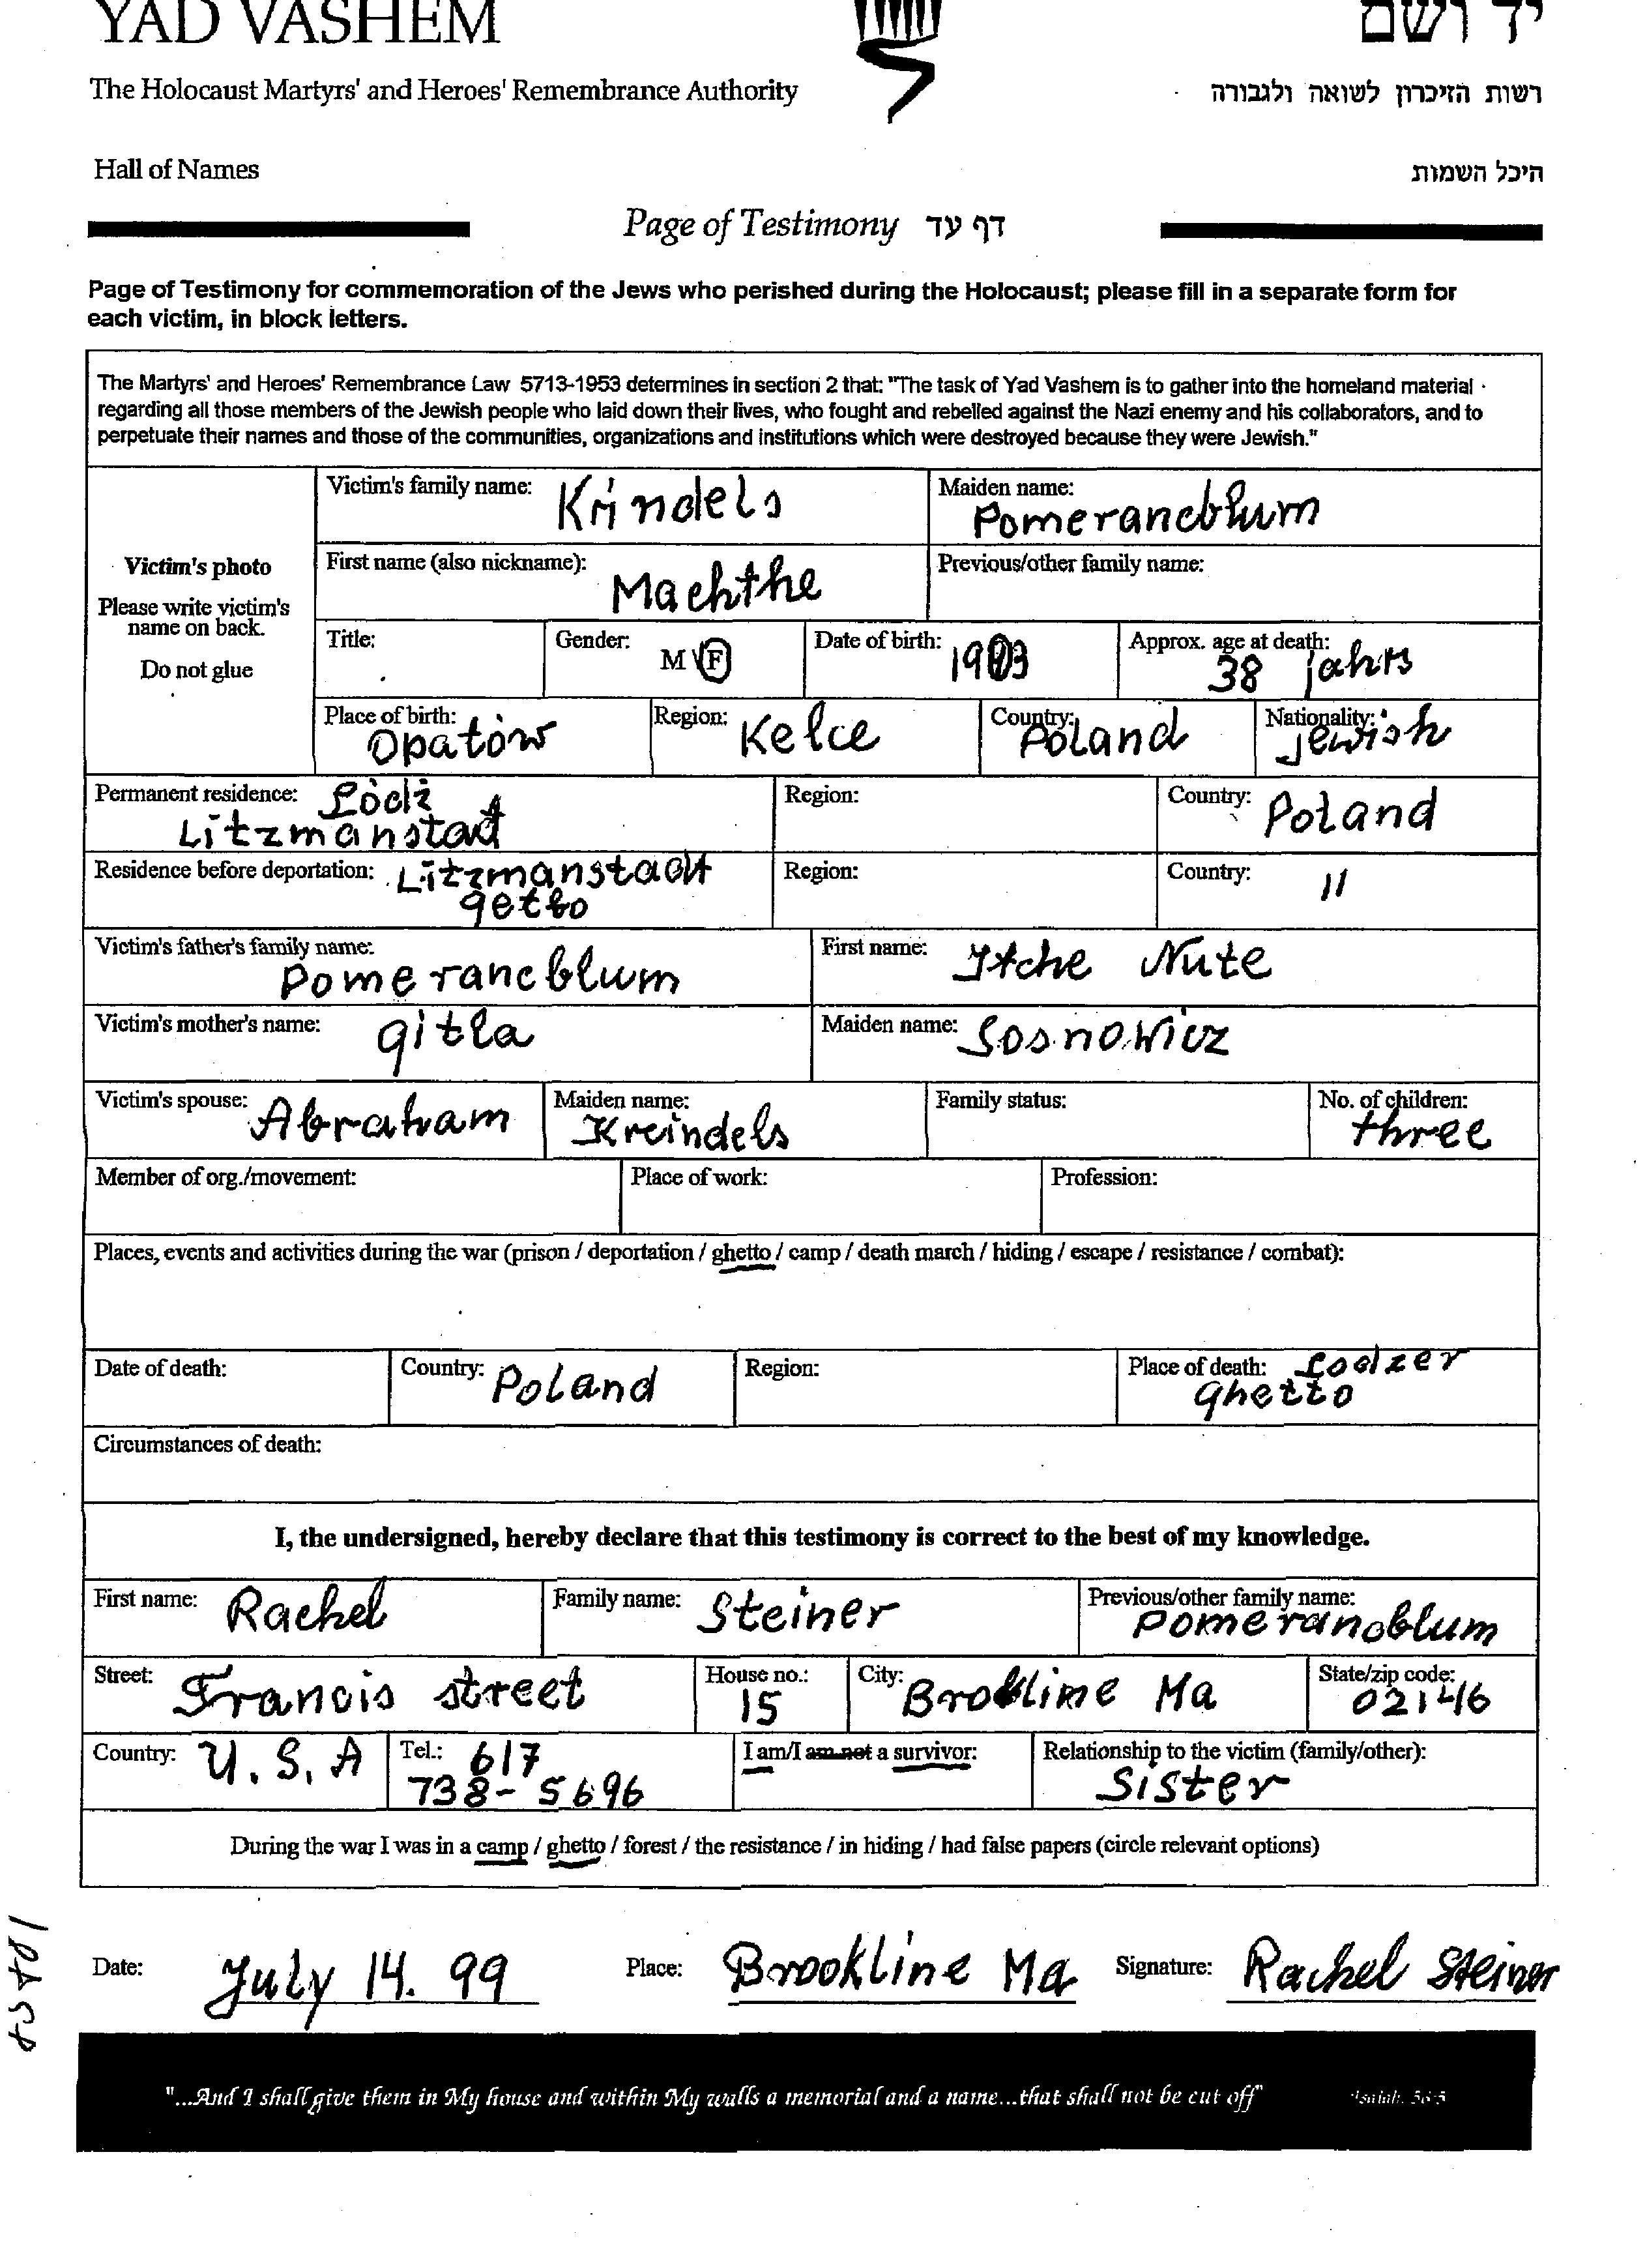 YAD VASHEM
יד ושם
The Holocaust Martyrs' and Heroes' Remembrance Authority
רשות הזיכרון לשואה ולגבורה
Hall of Names
היכל השמות
Page of Testimony דף עד
Page of Testimony for commemoration of the Jews who perished during the Holocaust; please fill in a separate form for
each victim, in block letters.
The Martyrs' and Heroes' Remembrance Law 5713-1953 determines in section 2 that: "The task of Yad Vashem is to gather into the homeland material
regarding all those members of the Jewish people who laid down their lives, who fought and rebelled against the Nazi enemy and his collaborators, and to
perpetuate their names and those of the communities, organizations and institutions which were destroyed because they were Jewish."
Victim's photo
Please write victim's
name on back.
Do not glue
Victim's family name: Krindels
Maiden name: Pomerancblum
First name (also nickname): Machthe
Previous/other family name:
Title:
Gender: M \ F
Date of birth: 1903
Approx. age at death: 38 jahrs
Place of birth: Opatów
Region: Kelce
Country: Poland
Nationality: jewish
Permanent residence: Łódź
Litzmanstadt
Region:
Country: Poland
Residence before deportation: Litzmanstadt
getto
Region:
Country: "
Victim's father's family name: Pomerancblum
First name: Itche Nute
Victim's mother's name: gitla
Maiden name: Sosnowicz
Victim's spouse: Abraham
Maiden name: Kreindels
Family status:
No. of children: three
Member of org./movement:
Place of work:
Profession:
Places, events and activities during the war (prison / deportation / ghetto / camp / death march / hiding / escape / resistance / combat):
Date of death:
Country: Poland
Region:
Place of death: Lodzer
ghetto
Circumstances of death:
I, the undersigned, hereby declare that this testimony is correct to the best of my knowledge.
First name: Rachel
Family name: Steiner
Previous/other family name: Pomerancblum
Street: Francis street
House no.: 15
City: Brokline Ma
State/zip code: 02146
Country: U.S.A
Tel.: 617
738-5696
I am/I am not a survivor:
Relationship to the victim (family/other): Sister
During the war I was in a camp / ghetto / forest / the resistance / in hiding / had false papers (circle relevant options)
Date: July 14. 99
Place: Brookline Ma
Signature: Rachel Steiner
"...And I shall give them in My house and within My walls a memorial and a name...that shall not be cut off"
Isaiah. 56:5